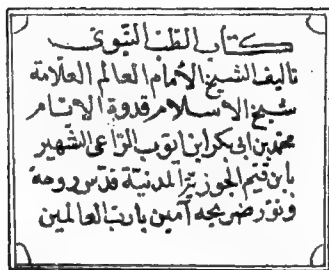 كتاب الطب النبوى
تاليف الشيخ الأمام العالم العلامة
شيخ الاسلام قدوة الانام
محمد بن ابى بكر ابن ايوب الزاعى الشهير
بابن قيم الجوزية المدنية قدس روحه
ونور ضريحه آمين يارب العالمين